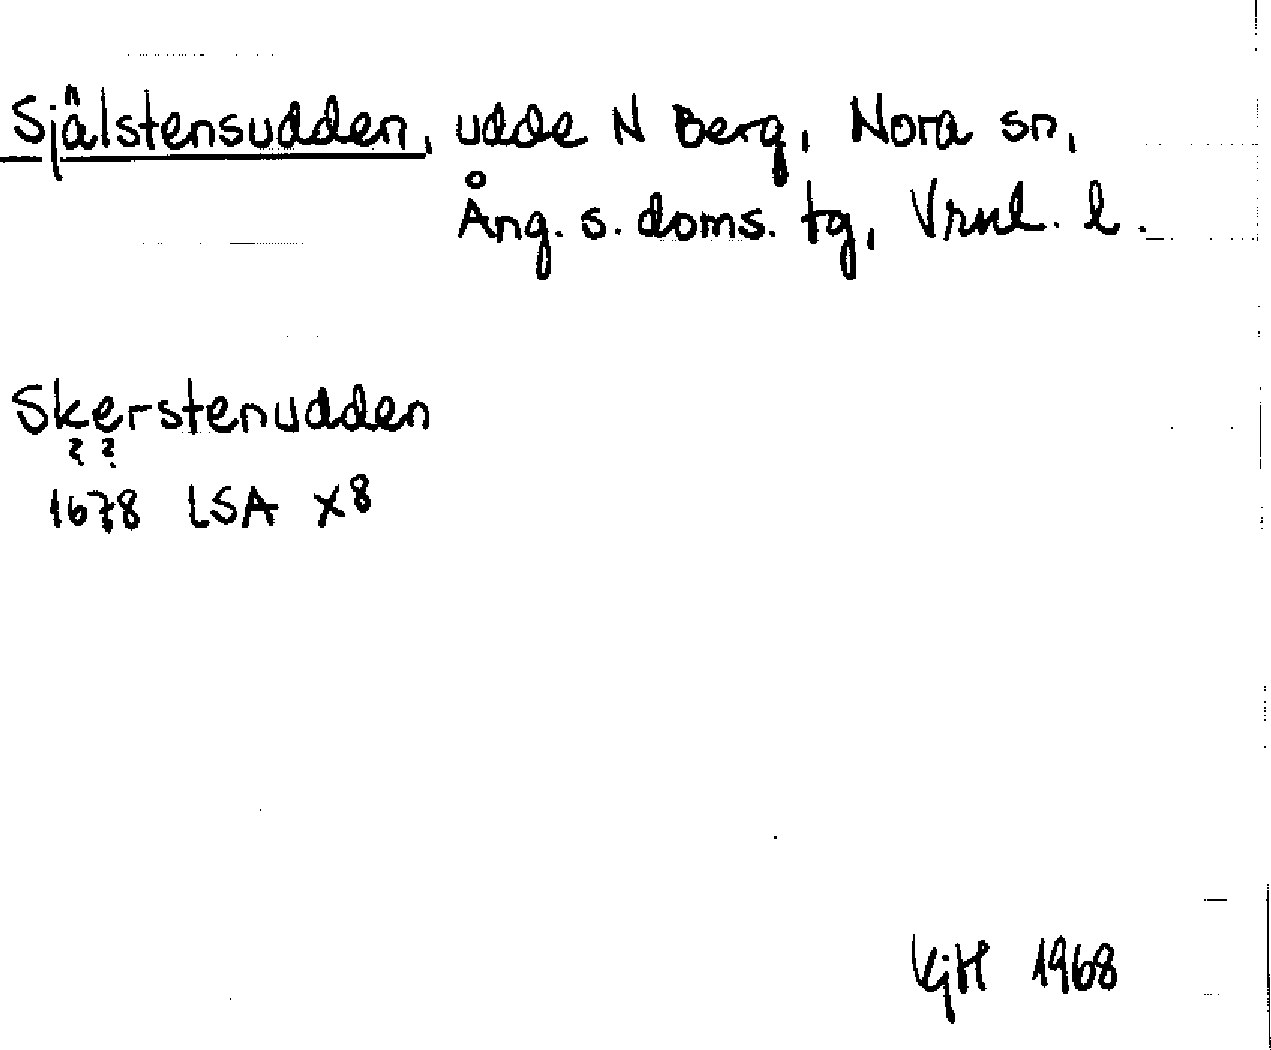 Själstensudden, udde N Berg, Nora sn,
Ång. s. doms. tg, Vrnl. l.
Skerstenudden
? ?
1678 LSA X8
KjH 1968